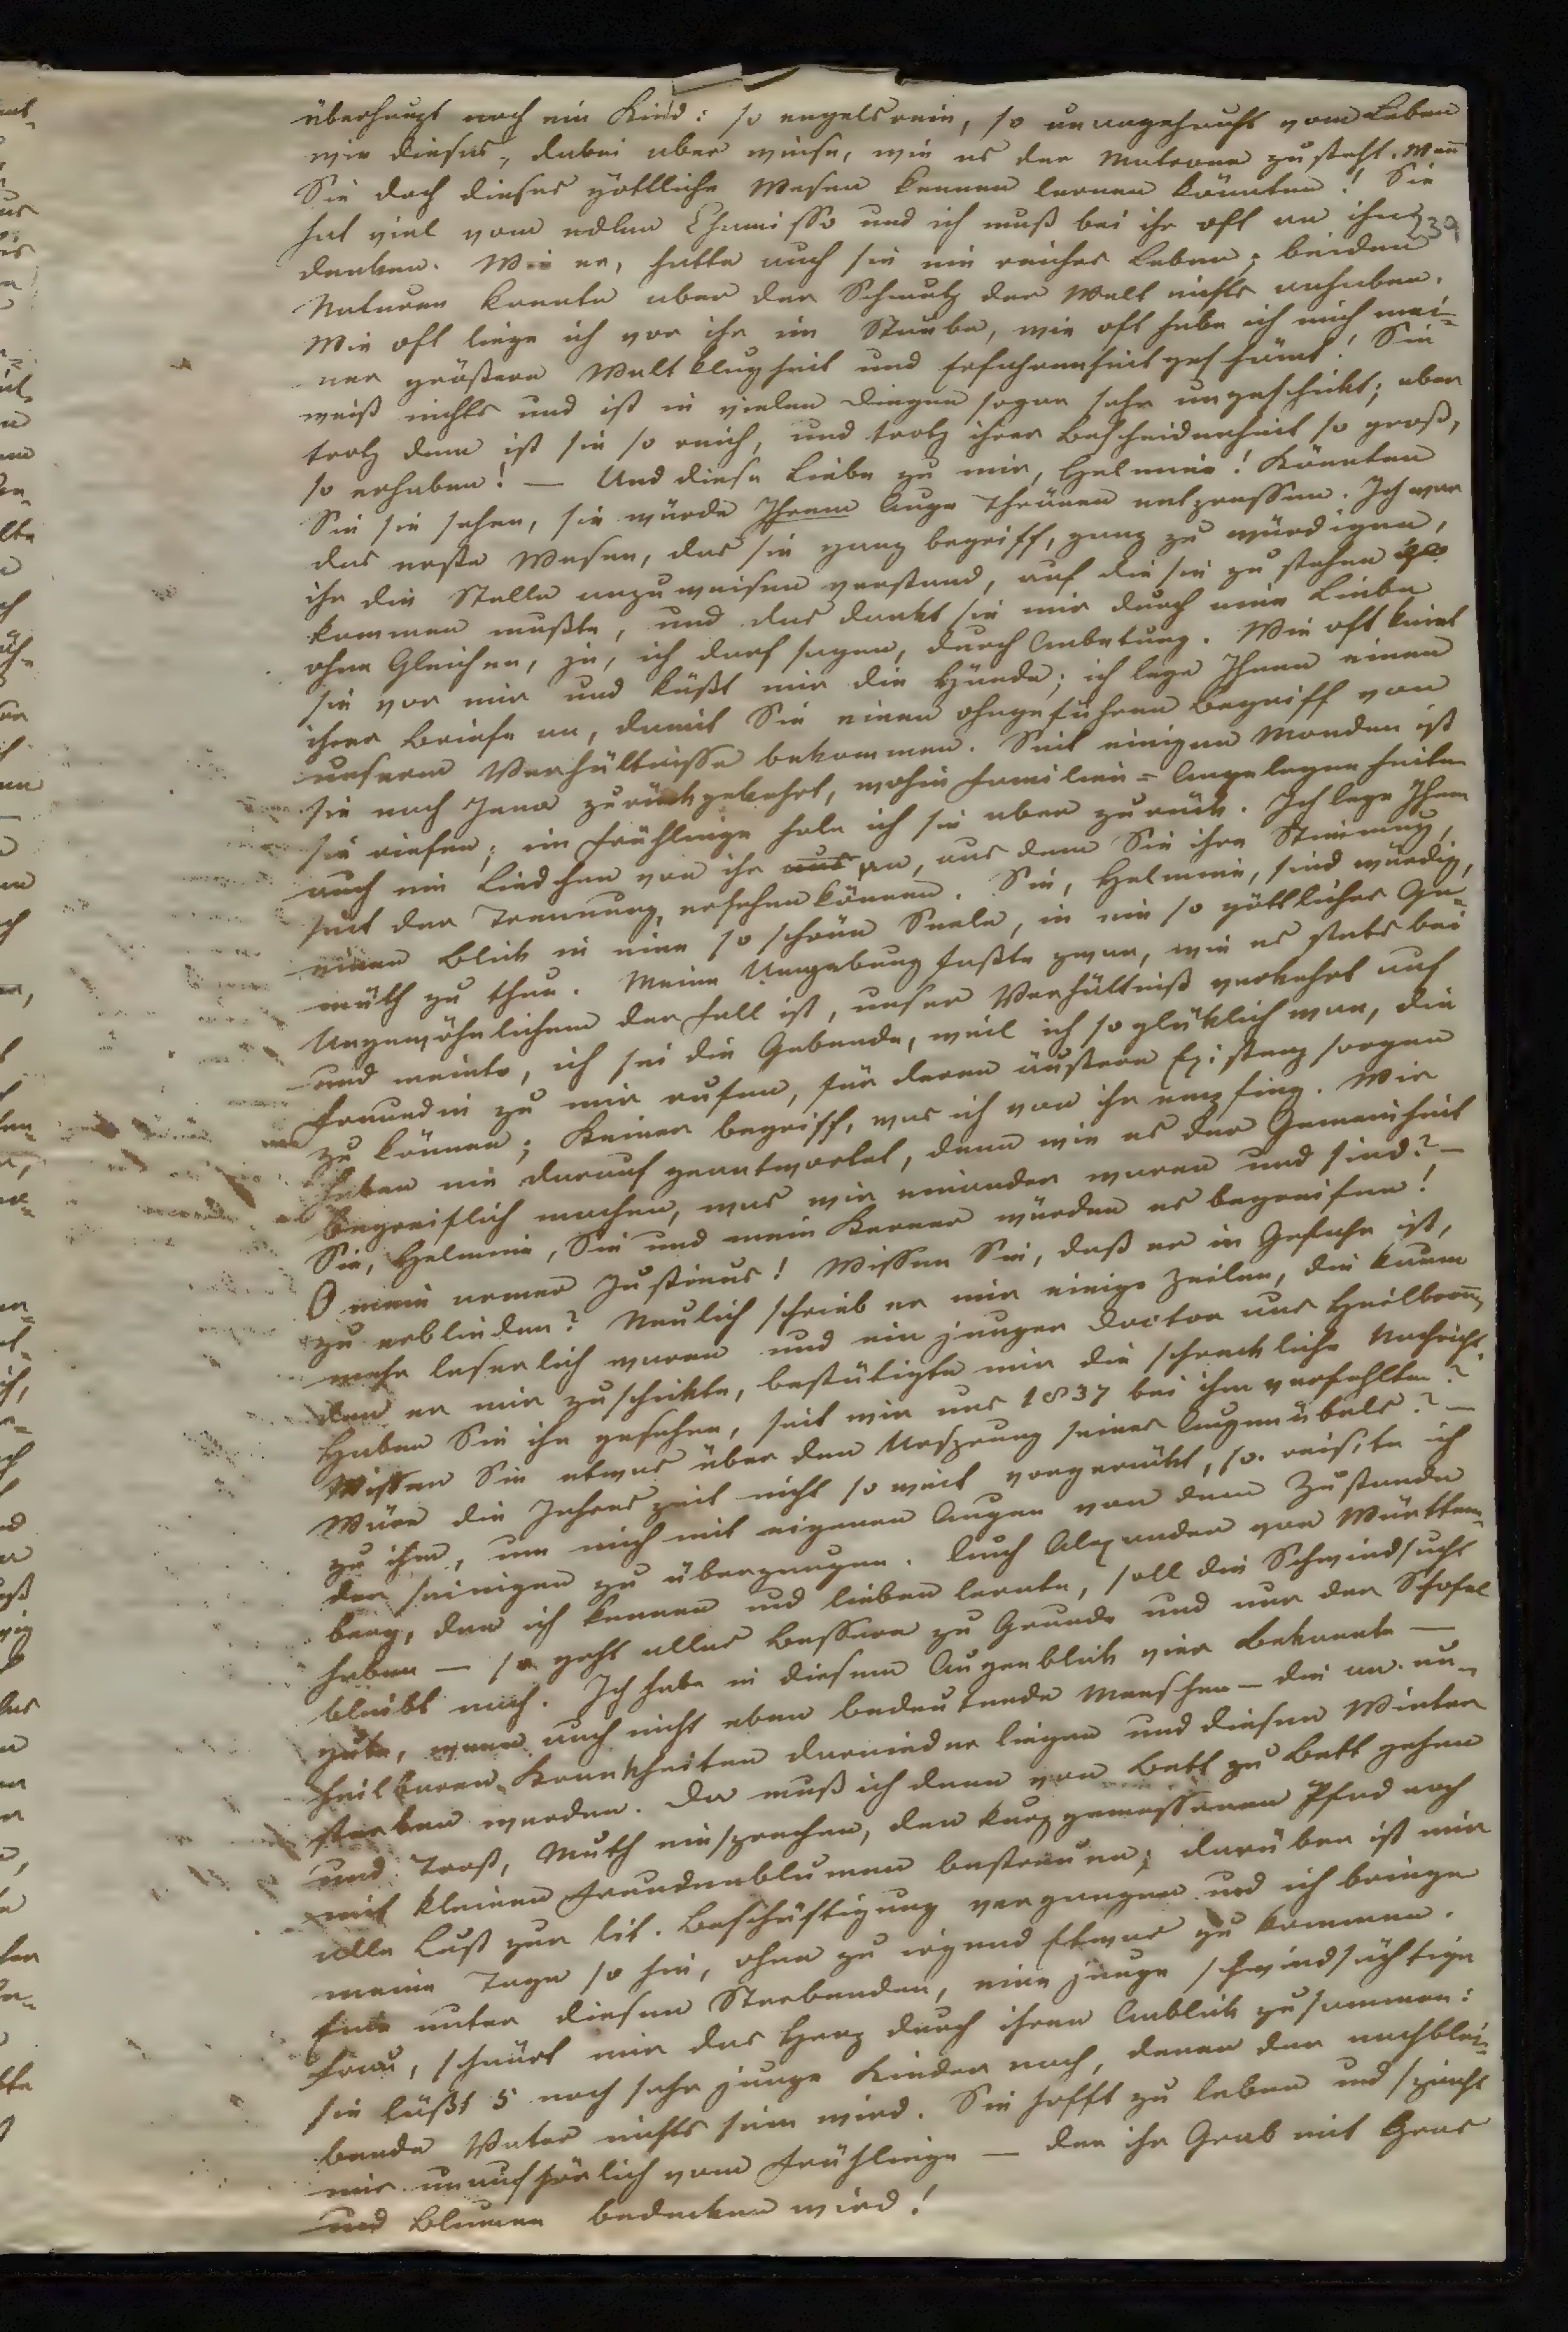 überhaupt noch ein Kind: so engelsrein, so unangehaucht vom Leben
wie dieses, dabei aber weise, wie es der Matrone zusteht. Wenn
Sie doch dieses göttliche Wesen kennen lernen könnten! Sie
hat viel vom edlen Chamisso und ich muß bei ihr oft an ihn
239
denken. Wie er, hatte auch sie ein reiches Leben; beiden
Naturen konnte aber der Schmutz der Welt nichts anhaben.
Wie oft liege ich vor ihr im Staube, wie oft habe ich mich mei-
ner größern Weltklugheit und Erfahrenheit geschämt! Sie
weiß nichts und ist in vielen Dingen sogar sehr ungeschickt; aber
trotz dem ist sie so reich, und trotz ihrer Bescheidenheit so groß,
so erhaben! — Und diese Liebe zu mir, Helmine! Könnten
Sie sie sehen, sie würde Ihrem Auge Thränen entpressen. Ich war
das erste Wesen, das sie ganz begriff, ganz zu würdigen,
ihr die Stelle anzuweisen verstand, auf die sie zu stehen
kommen mußte, und das dankt sie mir durch eine Liebe
ohne Gleichen, ja, ich darf sagen, durch Anbetung. Wie oft kniet
sie vor mir und küßt mir die Hände; ich lege Ihnen einen
ihrer Briefe an, damit Sie einen ohngefähren Begriff von
unserem Verhältnisse bekommen. Seit einigen Monden ist
sie nach Jena zurückgekehrt, wohin Familien-Angelegenheiten
sie riefen; im Frühlinge hole ich sie aber zurück. Ich lege Ihnen
auch ein Liedchen von ihr aus an, aus dem Sie ihre Stimmung,
seit der Trennung, ersehen können. Sie, Helmine, sind würdig,
einen Blick in eine so schöne Seele, in ein so göttliches Ge-
müth zu thun. Meine Umgebung faßte zwar, wie es stets bei
Ungewöhnlichem der Fall ist, unser Verhältniß verkehrt auf
und meinte, ich sei die Gebende, weil ich so glüklich war, die
Freundin zu mir rufen, für deren äußere Existenz sorgen
zu können; Keiner begriff, was ich von ihr empfing. Wir
haben nie darauf geantwortet, denn wie es der Gemeinheit
begreiflich machen, was wir einander waren und sind? —
Sie, Helmine, Sie und mein Kerner würden es begreifen!
O mein armer Justinus! Wissen Sie, daß er in Gefahr ist,
zu erblinden? Neulich schrieb er mir einige Zeilen, die kaum
mehr leserlich waren und ein junger Doctor aus Heilbronn,
den er mir zuschickte, bestätigte mir die schreckliche Nachricht.
Haben Sie ihn gesehen, seit wir uns 1837 bei ihm verfehlten?
Wissen Sie etwas über den Ursprung seines Augenübels? —
Wäre die Jahreszeit nicht so weit vorgerückt, so reis'te ich
zu ihm, um mich mit eigenen Augen von dem Zustande
der seinigen zu überzeugen. Auch Alexander von Württem-
berg, den ich kennen und lieben lernte, soll die Schwindsucht
haben — so geht alles Bessere zu Grunde und nur der Schofel
bleibt nach. Ich habe in diesem Augenblick vier Bekannte —
gute, wenn auch nicht eben bedeutende Menschen — die an un-
heilbaren Krankheiten darnieder liegen und diesen Winter
sterben werden. Da muß ich denn von Bett zu Bett gehen
und Trost, Muth einsprechen, den kurz gemessenen Pfad noch
mit kleinen Freudenblumen bestreuen; darüber ist mir
alle Lust zur lit. Beschäftigung vergangen und ich bringe
meine Tage so hin, ohne zu irgend Etwas zu kommen.
Eine unter diesen Sterbenden, eine junge schwindsüchtige
Frau, schnürt mir das Herz durch ihren Anblick zusammen:
sie läßt 5 noch sehr junge Kinder nach, denen der nachblei-
bende Vater nichts sein wird. Sie hofft zu leben und spricht
mir unaufhörlich vom Frühlinge — der ihr Grab mit Gras
und Blumen bedecken wird!